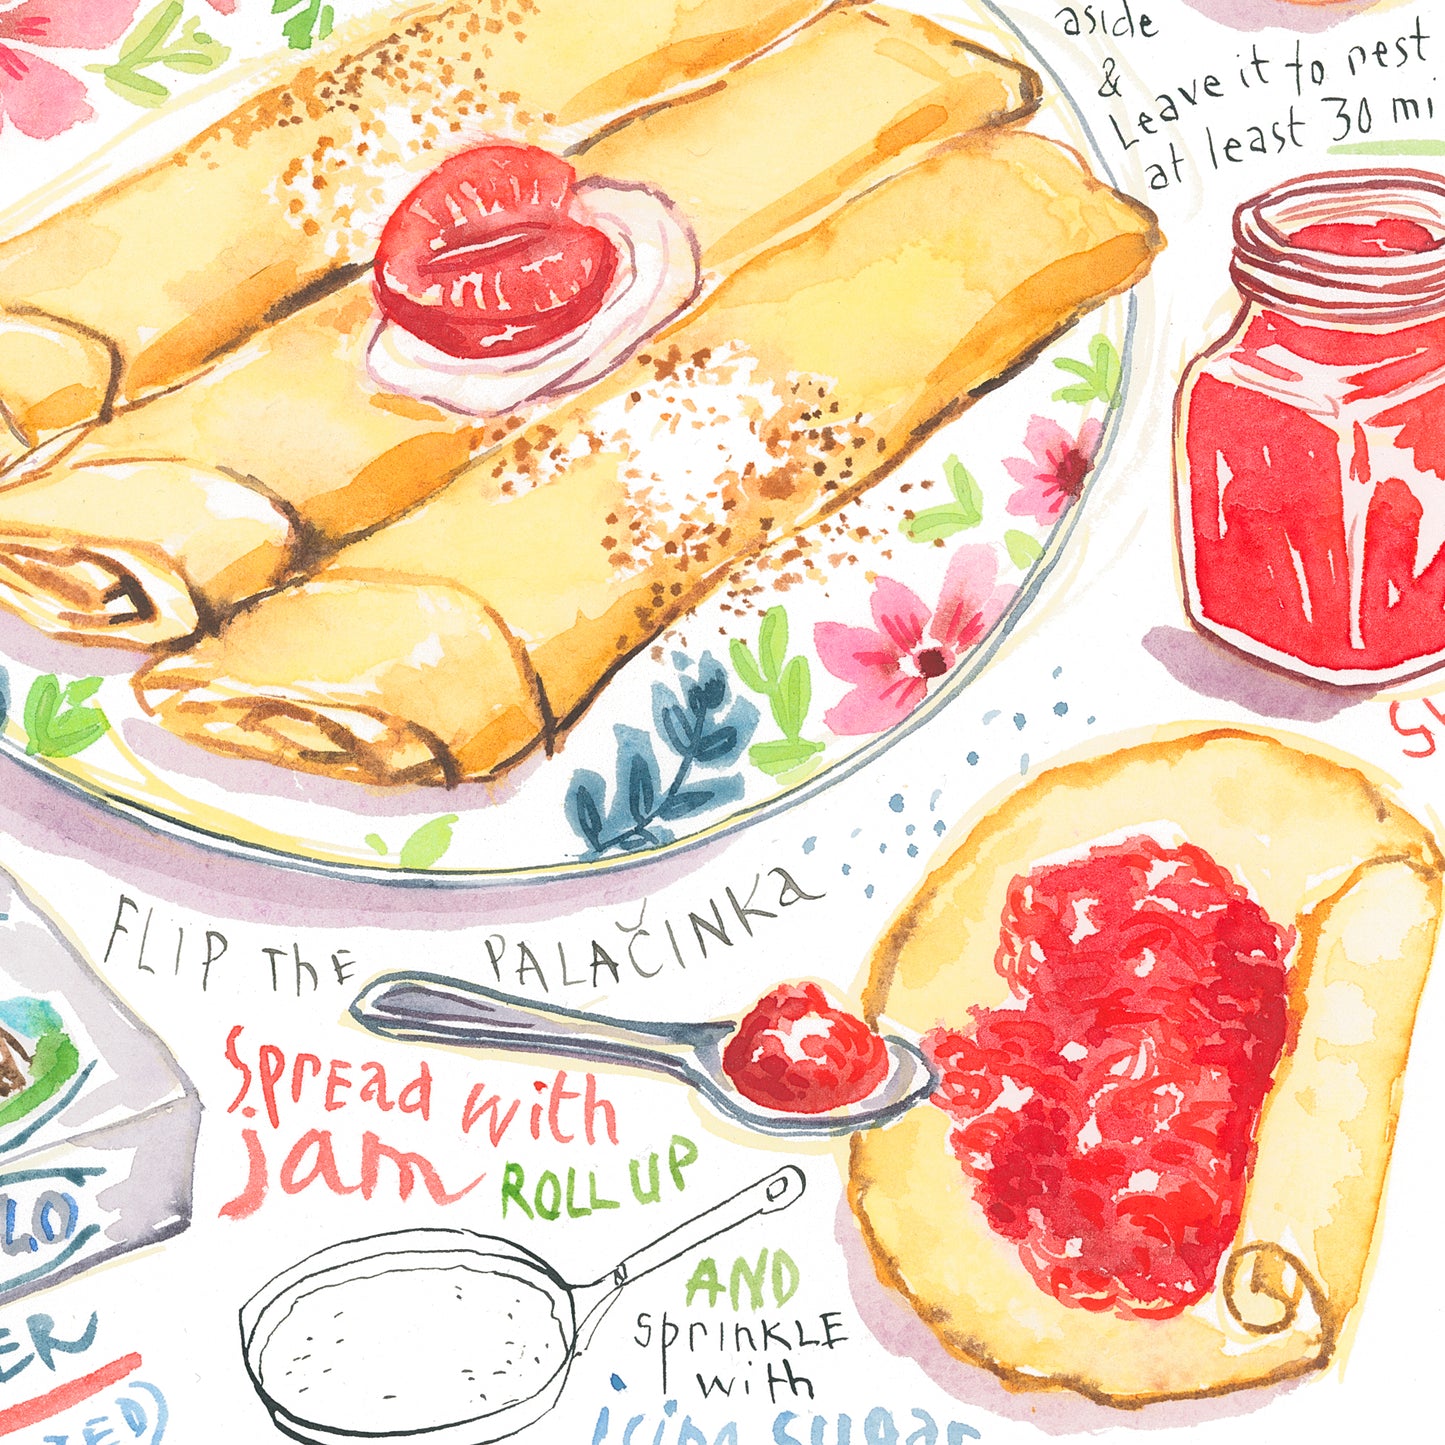 aside
&
Leave it to rest
at least 30 mi
FLIP ThE PALAČINKa
Spread with
jam
ROLL UP
AND
sprinkLE
with
icing sugar